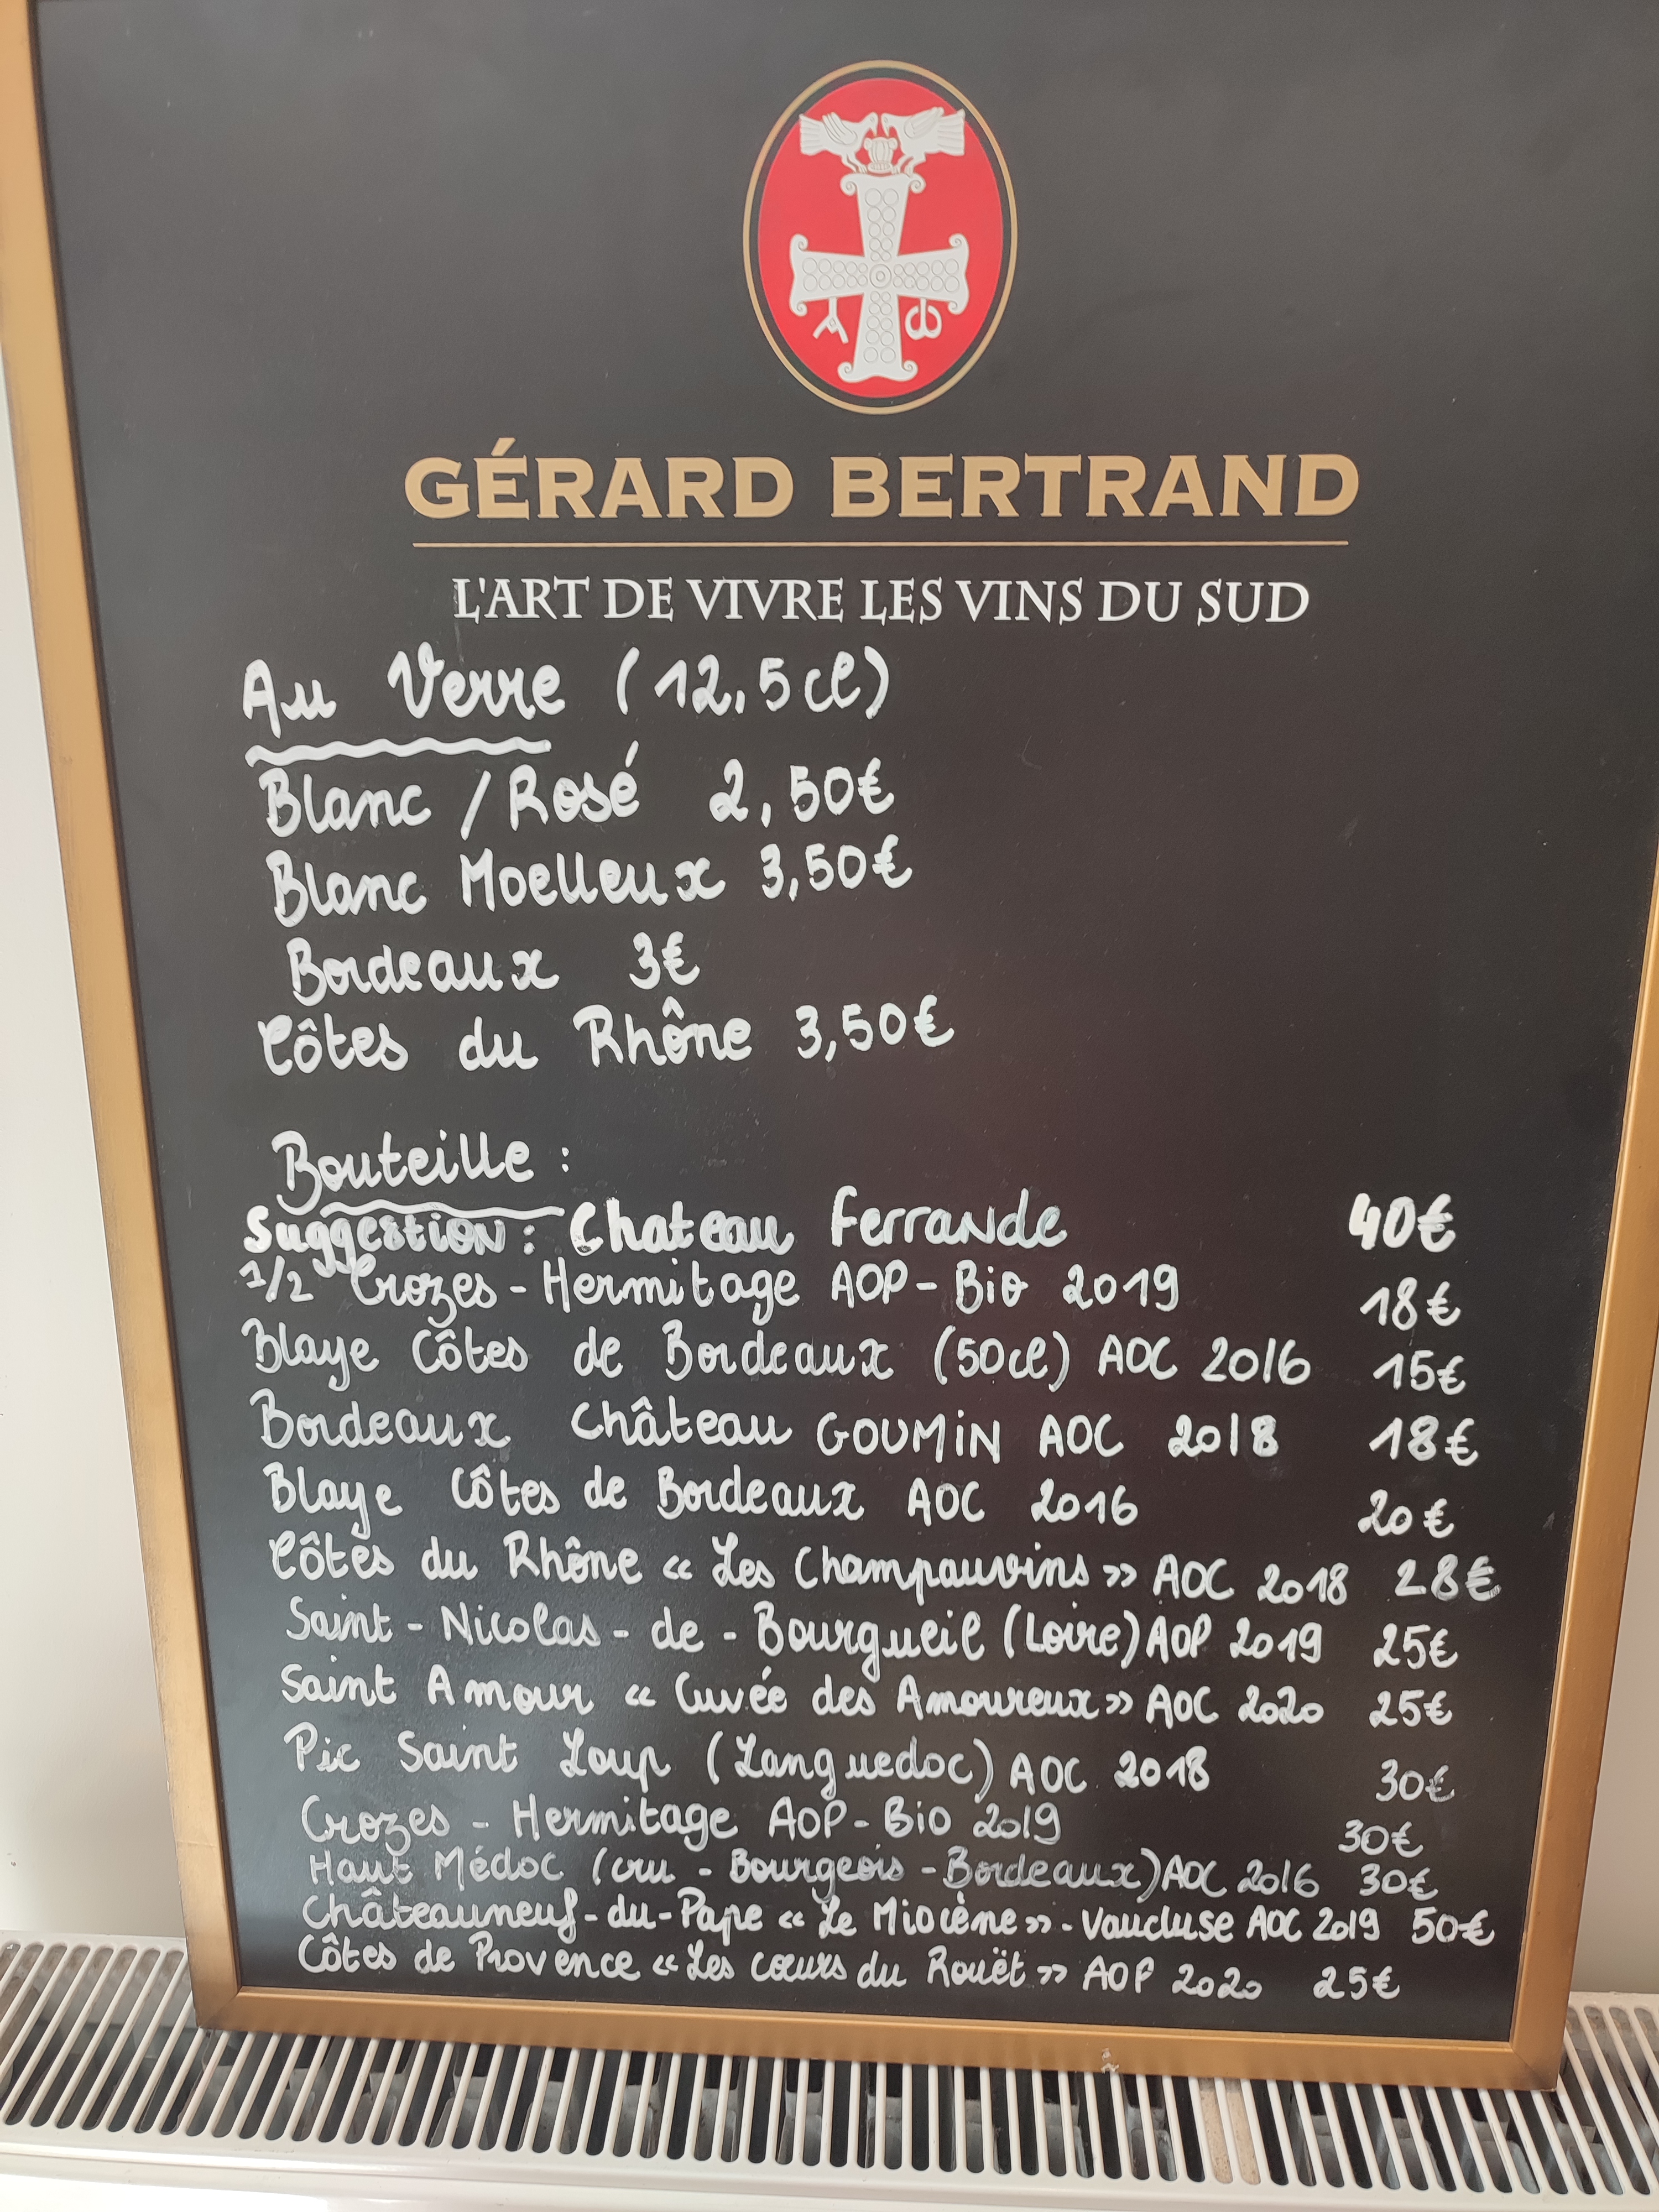 GÉRARD BERTRAND
L'ART DE VIVRE LES VINS DU SUD
Au Verre (12,5cl)
Blanc / Rosé 2,50€
Blanc Moelleux 3,50€
Bordeaux 3€
Côtes du Rhône 3,50€
Bouteille :
Suggestion : Chateau Ferrande 40€
1/2 Crozes-Hermitage AOP-Bio 2019 18€
Blaye Côtes de Bordeaux (50cl) AOC 2016 15€
Bordeaux Château GOUMIN AOC 2018 18€
Blaye Côtes de Bordeaux AOC 2016 20€
Côtes du Rhône « Les Champauvins » AOC 2018 28€
Saint-Nicolas-de-Bourgueil (Loire) AOP 2019 25€
Saint Amour « Cuvée des Amoureux » AOC 2020 25€
Pic Saint Loup (Languedoc) AOC 2018 30€
Crozes-Hermitage AOP-Bio 2019 30€
Haut Médoc (cru-Bourgeois-Bordeaux) AOC 2016 30€
Châteauneuf-du-Pape « Le Miocène » - Vaucluse AOC 2019 50€
Côtes de Provence « Les cœurs du Rouët » AOP 2020 25€